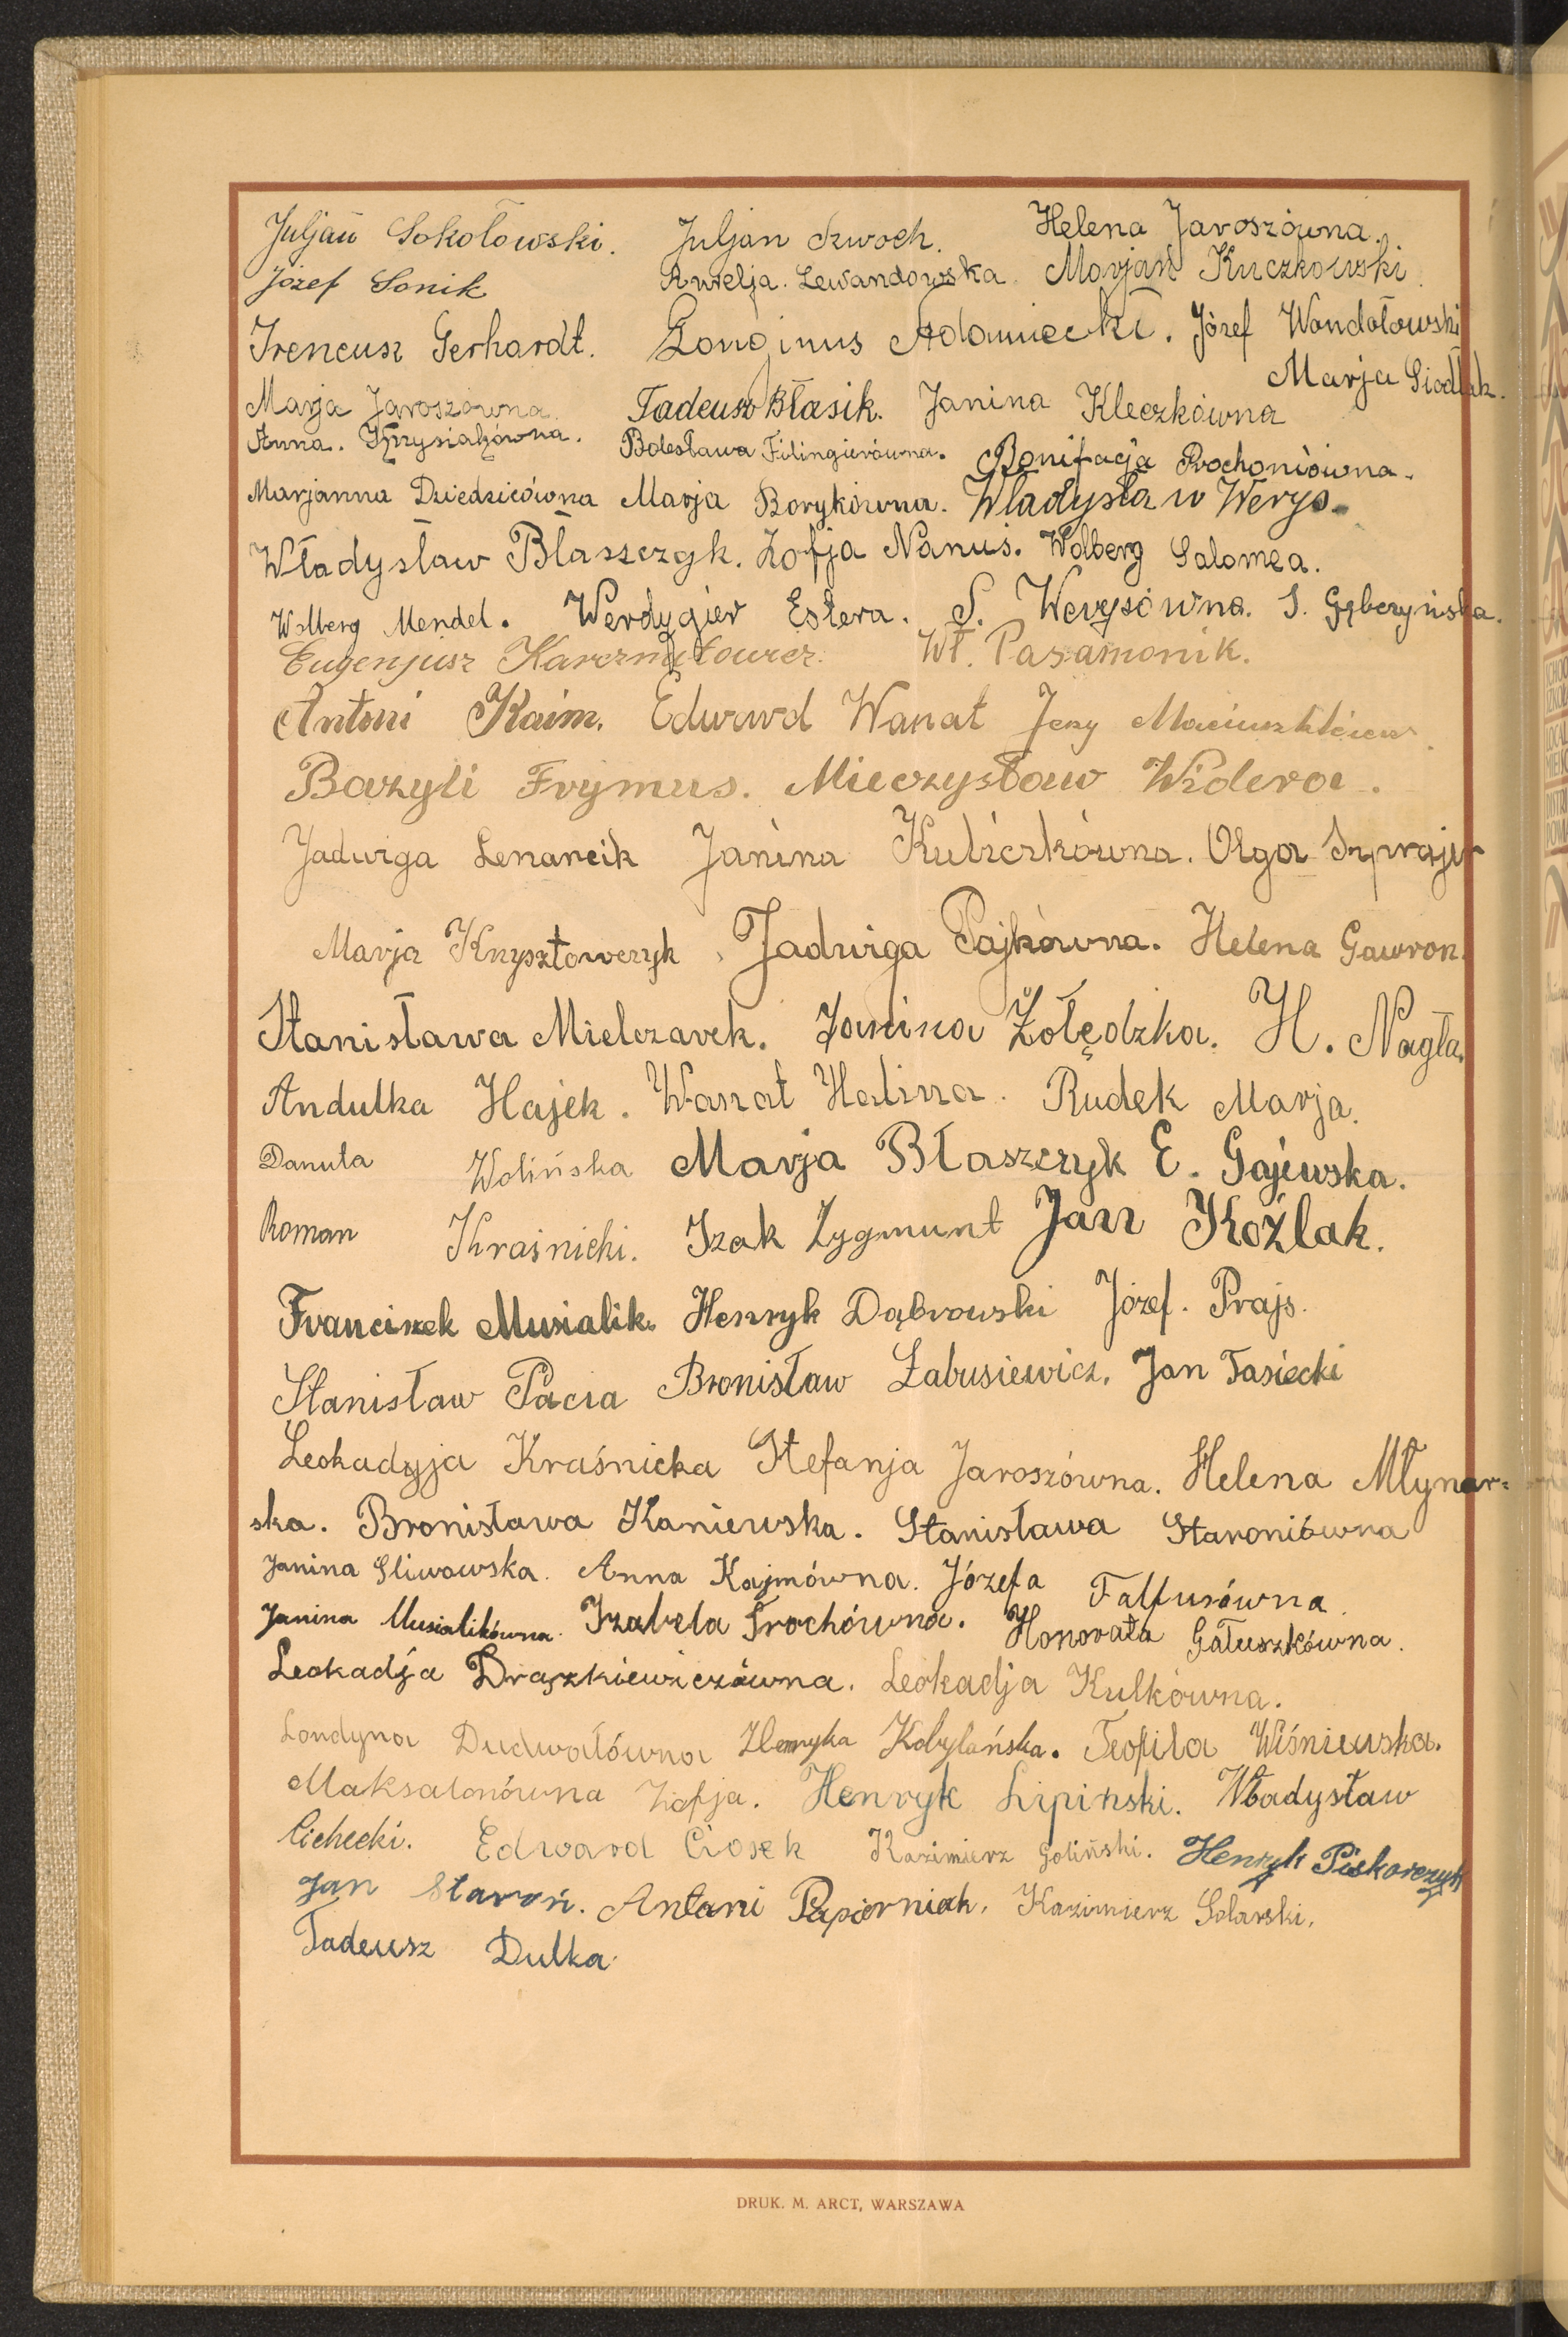 Juljan Sokołowski. Juljan Szwoch. Helena Jaroszówna.
Józef Sonik Aurelja. Lewandowska. Marjan Kuczkowski.
Ireneusz Gerhardt. Longinus Adamiecki. Józef Wandołowski
Marja Siodłak.
Marja Jaroszówna. Tadeusz Błasik. Janina Kleczkówna
Anna. Krzysiakówna. Bolesława Filingierówna. Bonifacja Prochoniówna.
Marjanna Dziedzicówna Marja Borykówna. Władysław Werys.
Władysław Błaszczyk. Zofja Nanuś. Wolberg Salomea.
Wolberg Mendel. Werdygier Estera. S. Werysówna. S. Gębczyńska.
Eugenjusz Wł. Pasamonik.
Antoni Kaim. Edward Wanat Jerzy
Bazyli Frymus. Mieczysław Widera.
Jadwiga Lenarcik Janina Kubiczkówna. Olga Szprajer
Marja Krzysztowczyk, Jadwiga Pajkówna. Helena Gawron.
Stanisława Mielczarek. Janina Żołędzka. H. Nagła.
Andulka Hajek. Wanat Halina. Rudek Marja.
Danuta Wolińska Marja Błaszczyk E. Gajewska.
Roman Kraśnicki. Izak Zygmunt Jan Koźlak.
Franciszek Musialik. Henryk Dąbrowski Józef. Prajs.
Stanisław Pacia Bronisław Łabusiewicz. Jan Tasiecki
Leokadyja Kraśnicka Stefanja Jaroszówna. Helena Młynar=
ska. Bronisława Kaniewska. Stanisława Staroniówna
Janina Śliwowska. Anna Kajmówna. Józefa Falfusówna.
Janina Musialikówna. Izabela Trochówna. Honorata Gałuszkówna.
Leokadja Drązkiewiczówna. Leokadja Kulkówna.
Londyna Dudwałówna Henryka Kobylańska. Teofila Wiśniewska.
Maksalonówna Zofja. Henryk Lipiński. Władysław
Cichecki. Edward Ciosek Kazimierz Goliński. Henryk Piskorczyk
Jan Staroń. Antoni Papierniak. Kazimierz Solarski.
Tadeusz Dulka.
DRUK. M. ARCT, WARSZAWA